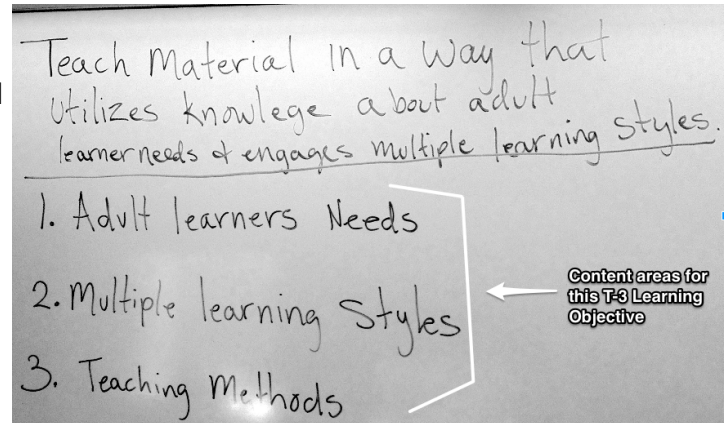 Teach Material in a way that
utilizes knowlege about adult
learner needs & engages multiple learning styles.
1. Adult learners Needs
2. Multiple learning Styles
3. Teaching Methods
Content areas for
this T-3 Learning
Objective